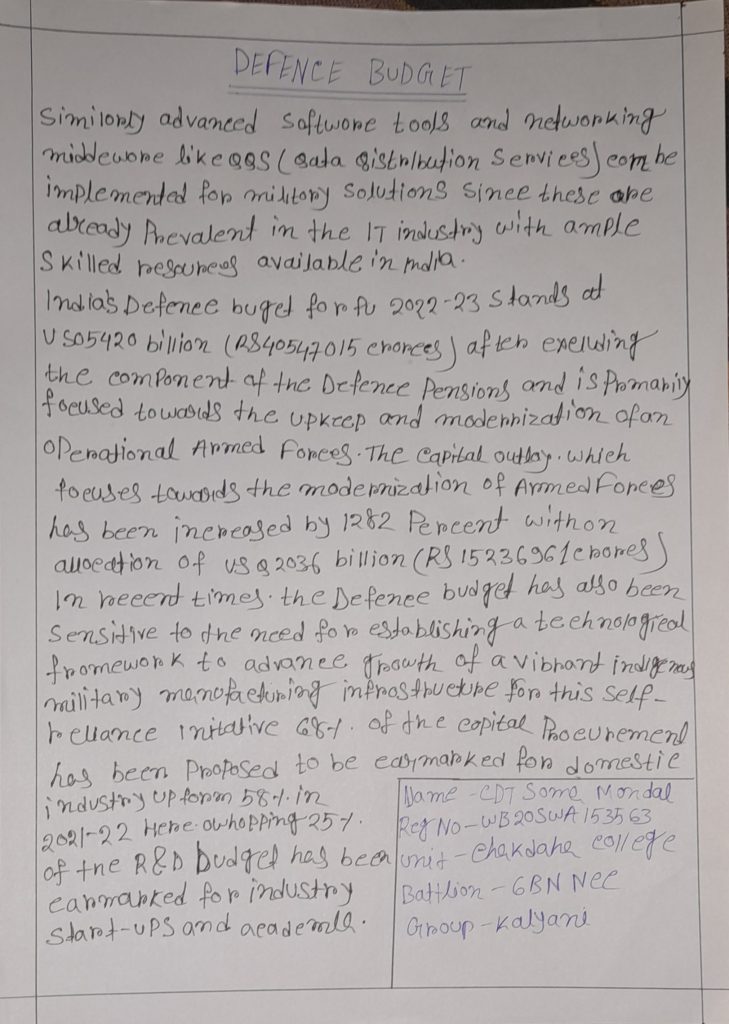 DEFENCE BUDGET
Similorly advanced Software tools and networking
middewore like QQS (Qata Qistribution Services) com be
implemented for military Solutions Since these are
already Prevalent in the IT industry with ample
Skilled resources available in India.
India's Defence buget for fu 2022-23 Stands at
USO5420 billion (RS40547015 crorees) after exeluding
the component of the Defence Pensions and is Promarily
focused towards the upkeep and modernization of an
Operational Armed Forces. The Capital outlay. which
focuses towards the modernization of Armed Forces
has been increased by 1282 Percent with on
allocation of US Q 2036 billion (RS 15236961 crores)
In recent times. the Defence budget has also been
Sensitive to the need for establishing a technological
fromework to advance growth of a vibrant indigenous
military manufacturing infrastructure for this Self-
reliance initative 68%. of the capital Procurement
has been Proposed to be earmarked for domestic
industry up form 58%. in
2021-22 Here owhopping 25%.
of the R&D budget has been
earmarked for industry
Start-UPS and academia.
Name - CDT Soma Mondal
Reg No - WB20SWA153563
Unit - Chakdaha College
Battlion - 6BN NCC
Group - Kalyani